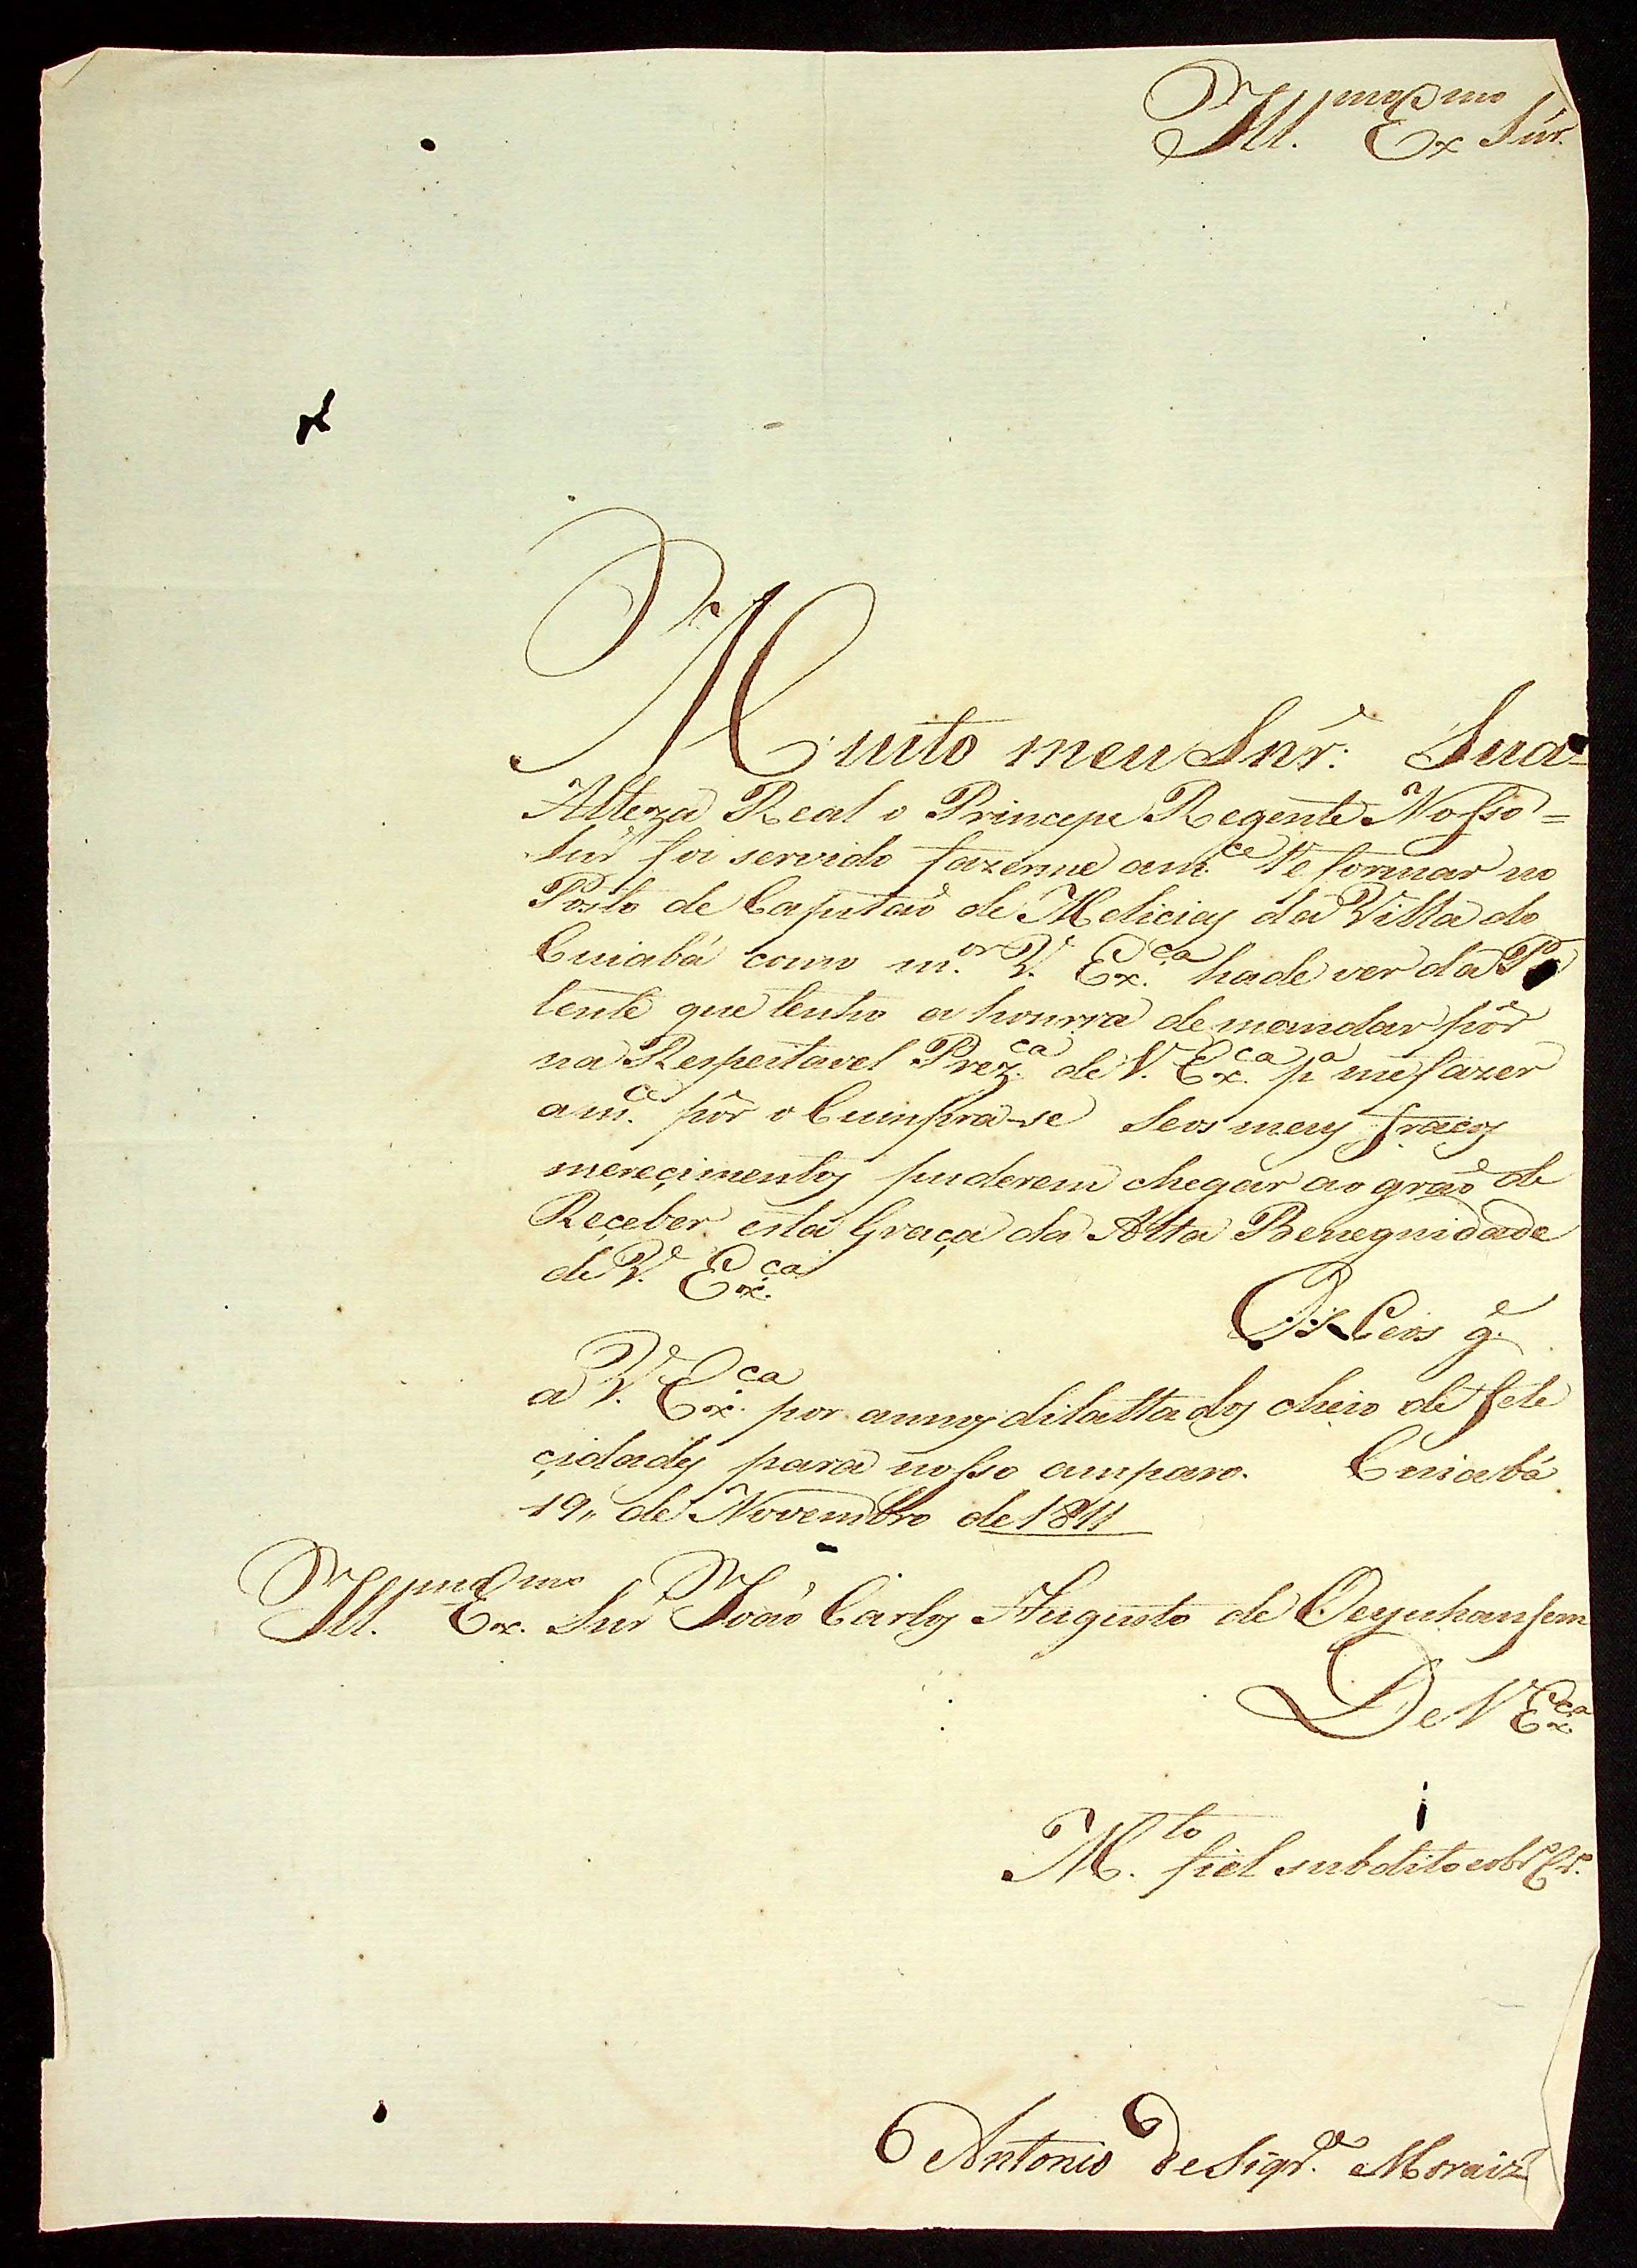 Ill.mo Ex.mo Snr.
Muito meu Snr.: Sua=
Alteza Real o Principe Regente Nosso=
Snr foi servido fazerme am.ce Reformar no
Posto de Capitaõ de Meliciaş da Villa do
Cuiabá como m.or V. Ex.ca hade ver da Pa
tente que tenho a honrra de mandar pôr
na Respeitavel Prez.ca de V. Ex.ca p.a me fazer
a m.ce pôr o Cumpra-se Seos meus fracos
mereçimentos puderem chegar ao graõ de
Reçeber esta Graça da Alta Benegnidade
de V. Ex.ca
Os Ceos g.e
a V. Ex.ca por annos dilattados cheio de fele
çidades para nosso amparo. Cuiabá
19,, de Novembro de 1811
Ill.mo Ex.mo Snr Joaõ Carlos Augusto de Oeynhausem
De V Ex.ca
M.to fiel subdito
Antonio de Siqr.a Moraiz